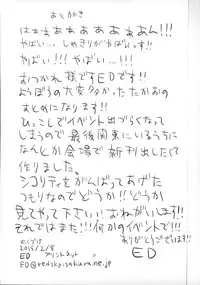 あとがき
はぁぁぁぁぁぁぁぁぁん!!!
やばい… しゃきりがやばいっす!!
やばい!!! やばい…!!!
おつかれ様ですEDです!!
よっぽうの大変多かったたかおの
まとめになります!
ひっこしでイベント出づらくなって
しまうので最後関東にいるうちに
なんとか会場で新刊出したくて
作りました。
シコリティをがんばってあげた
つもりなのでどうか!どうか!
見てやって下さい!!おねがいします!!
それではまた!!!何かのイベントで!!
ありがとうございます!!
ED
2015/2/18
ED プリントネット
redsky.sakura.ne.jp